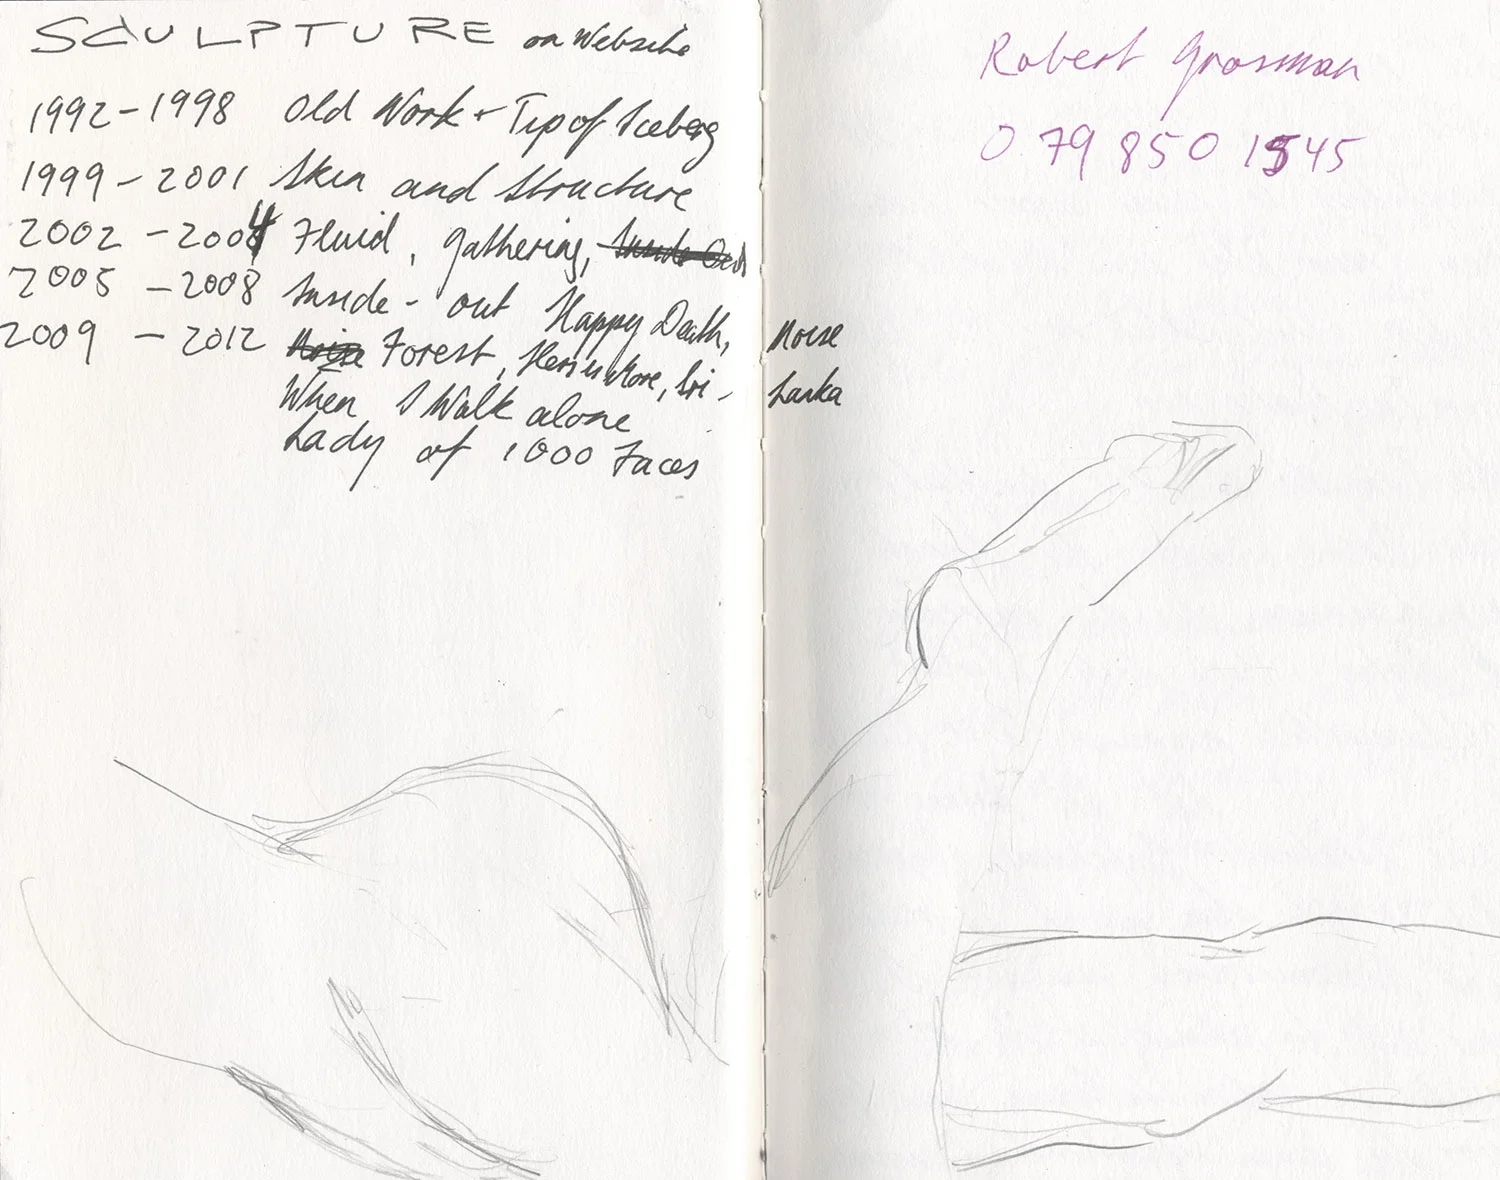 SCULPTURE on Website
1992-1998 Old Work + Tip of Iceberg
1999-2001 Skin and Structure
2002-2004 Fluid, gathering, Inside Out
2005-2008 Inside-out Happy Death, Noise
2009-2012 Noise Forest, Less is More, Sri-Lanka
When I Walk alone
Lady of 1000 Faces
Robert Grosman
0 79 850 1545